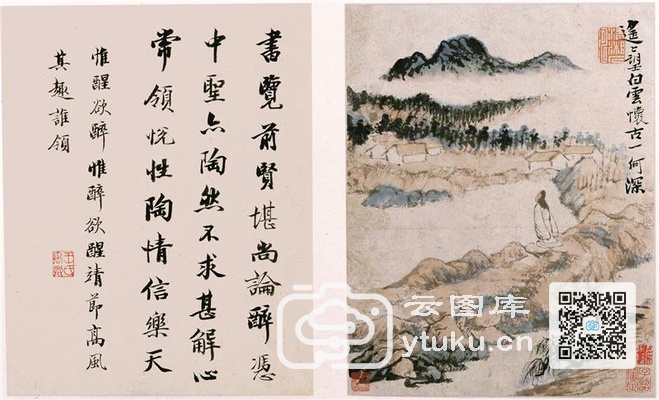 遙〻望白雲懷古一何深
書覽前賢堪尚論醉憑
中聖亦陶然不求甚解心
常領悅性陶情信樂天
惟醒欲醉惟醉欲醒靖節高風
其趣誰領
云图库
ytuku.cn